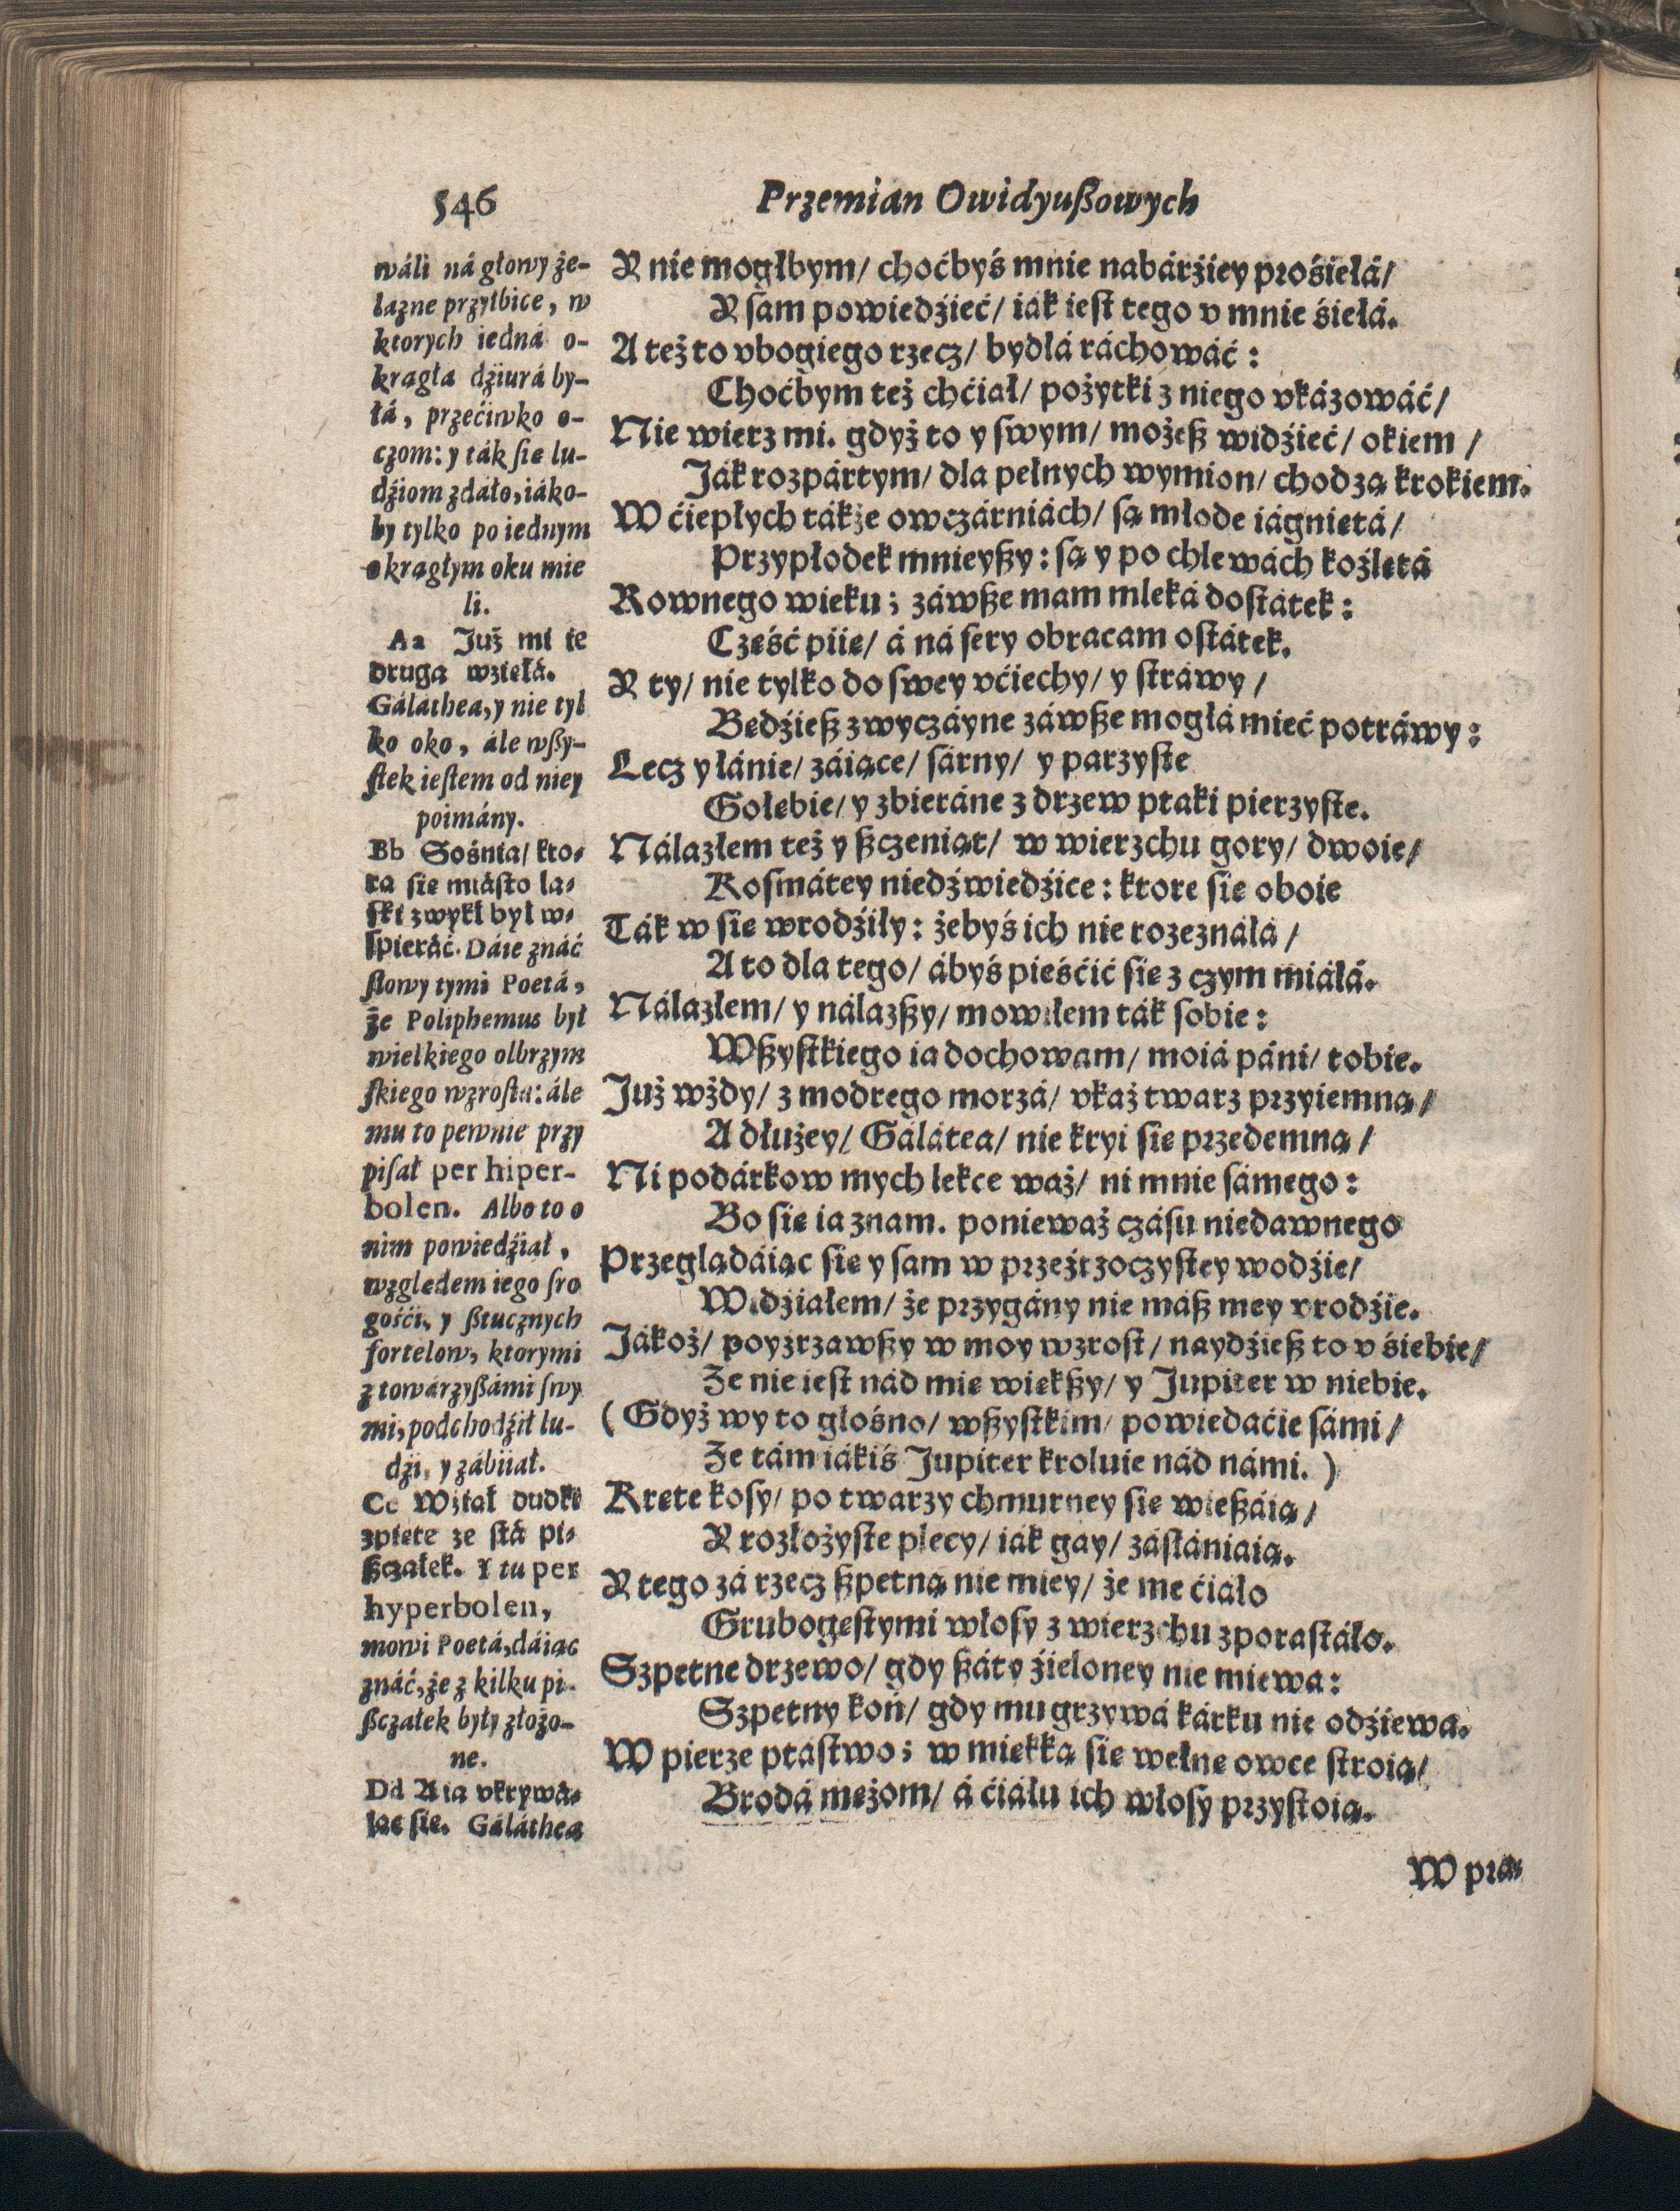 546
Przemian Owidyußowych
wáli ná głowy że-
lazne przyłbice, w
ktorych iedná o-
krągła dźiurá by-
łá, przećiwko o-
czom: y ták ſie lu-
dźiom zdáło, iáko-
by tylko po iednym
okrągłym oku mie
li.
Aa Już mi ie
druga wzięłá.
Gáláthea, y nie tyl
ko oko, ále wßy-
ſtek ieſtem od niey
poimány.
Bb Sośniá/ kto-
ra ſie miáſto la-
ſki zwykł był w-
ſpieráć. Dáie znáć
ſłowy tymi Poetá,
że Poliphemus był
wielkiego olbrzym
ſkiego wzroſtu: ále
mu to pewnie przy
piſał per hiper-
bolen. Albo to o
nim powiedźiał,
względem iego ſro
gośći, y ßtucznych
fortelow, ktorymi
z towárzyßámi ſwy
mi, podchodźił lu-
dźi, y zábiiał.
Cc Wźiął dudkę
zpiętę ze ſtá pi-
ßczałek. Y tu per
hyperbolen,
mowi Poetá, dáiąc
znáć, że z kilku pi-
ßczałek były złożo-
ne.
Dd A ia vkrywá-
iąc ſie. Gáláthea
Y nie mogłbym/ choćbyś mnie nabárźiey prośiełá/
Y ſam powiedźieć/ iák ieſt tego v mnie śiełá.
A też to vbogiego rzecz/ bydłá ráchowáć:
Choćbym też chćiał/ pożytki z niego vkázowáć/
Nie wierz mi. gdyż to y ſwym/ możeß widźieć/ okiem/
Ják rozpártym/ dla pełnych wymion/ chodzą krokiem.
W ćiepłych tákże owczárniách/ ſą młode iágniętá/
Przypłodek mnieyßy: ſą y po chlewách koźlętá
Rownego wieku; záwße mam mleká doſtátek:
Cześć piię/ á ná ſery obracam oſtátek.
Y ty/ nie tylko do ſwey vćiechy/ y ſtráwy/
Będźieß zwyczáyne záwße mogłá mieć potráwy:
Lecz y łánie/ záiące/ ſárny/ y parzyſte
Gołębie/ y zbieráne z drzew ptaki pierzyſte.
Nálazłem też y ßczeniąt/ w wierzchu gory/ dwoie/
Koſmátey niedźwiedźice: ktore ſie oboie
Ták w ſie wrodźiły: żebyś ich nie rozeznáłá/
A to dla tego/ ábyś pieśćić ſie z czym miáłá.
Nálazłem/ y nálazßy/ mowiłem ták ſobie:
Wßyſtkiego ia dochowam/ moiá páni/ tobie.
Już wżdy/ z modrego morzá/ vkaż twarz przyiemną/
A dłużey/ Gálátea/ nie kryi ſie przedemną/
Ni podárkow mych lekce waż/ ni mnie ſámego:
Bo ſie ia znam. ponieważ czáſu niedawnego
Przeglądáiąc ſie y ſam w przeźrzoczyſtey wodźie/
Widźiałem/ że przygány nie máß mey vrodźie.
Jákoż/ poyzrzawßy w moy wzroſt/ naydźieß to v śiebie/
Że nie ieſt nád mię więkßy/ y Jupiter w niebie.
(Gdyż wy to głośno/ wßyſtkim/ powiedaćie ſámi/
Że tám iákiś Jupiter kroluie nád námi.)
Kręte koſy/ po twarzy chmurney ſie wießáią/
Y rozłożyſte plecy/ iák gay/ záſłániaią.
Y tego zá rzecz ßpetną nie miey/ że me ćiáło
Grubogęſtymi włoſy z wierzchu zporaſtáło.
Szpetne drzewo/ gdy ßáty źieloney nie miewa:
Szpetny koń/ gdy mu grzywá kárku nie odźiewa.
W pierze ptáſtwo; w miękką ſie wełnę owce ſtroią/
Brodá mężom/ á ćiáłu ich włoſy przyſtoią.
W pra-